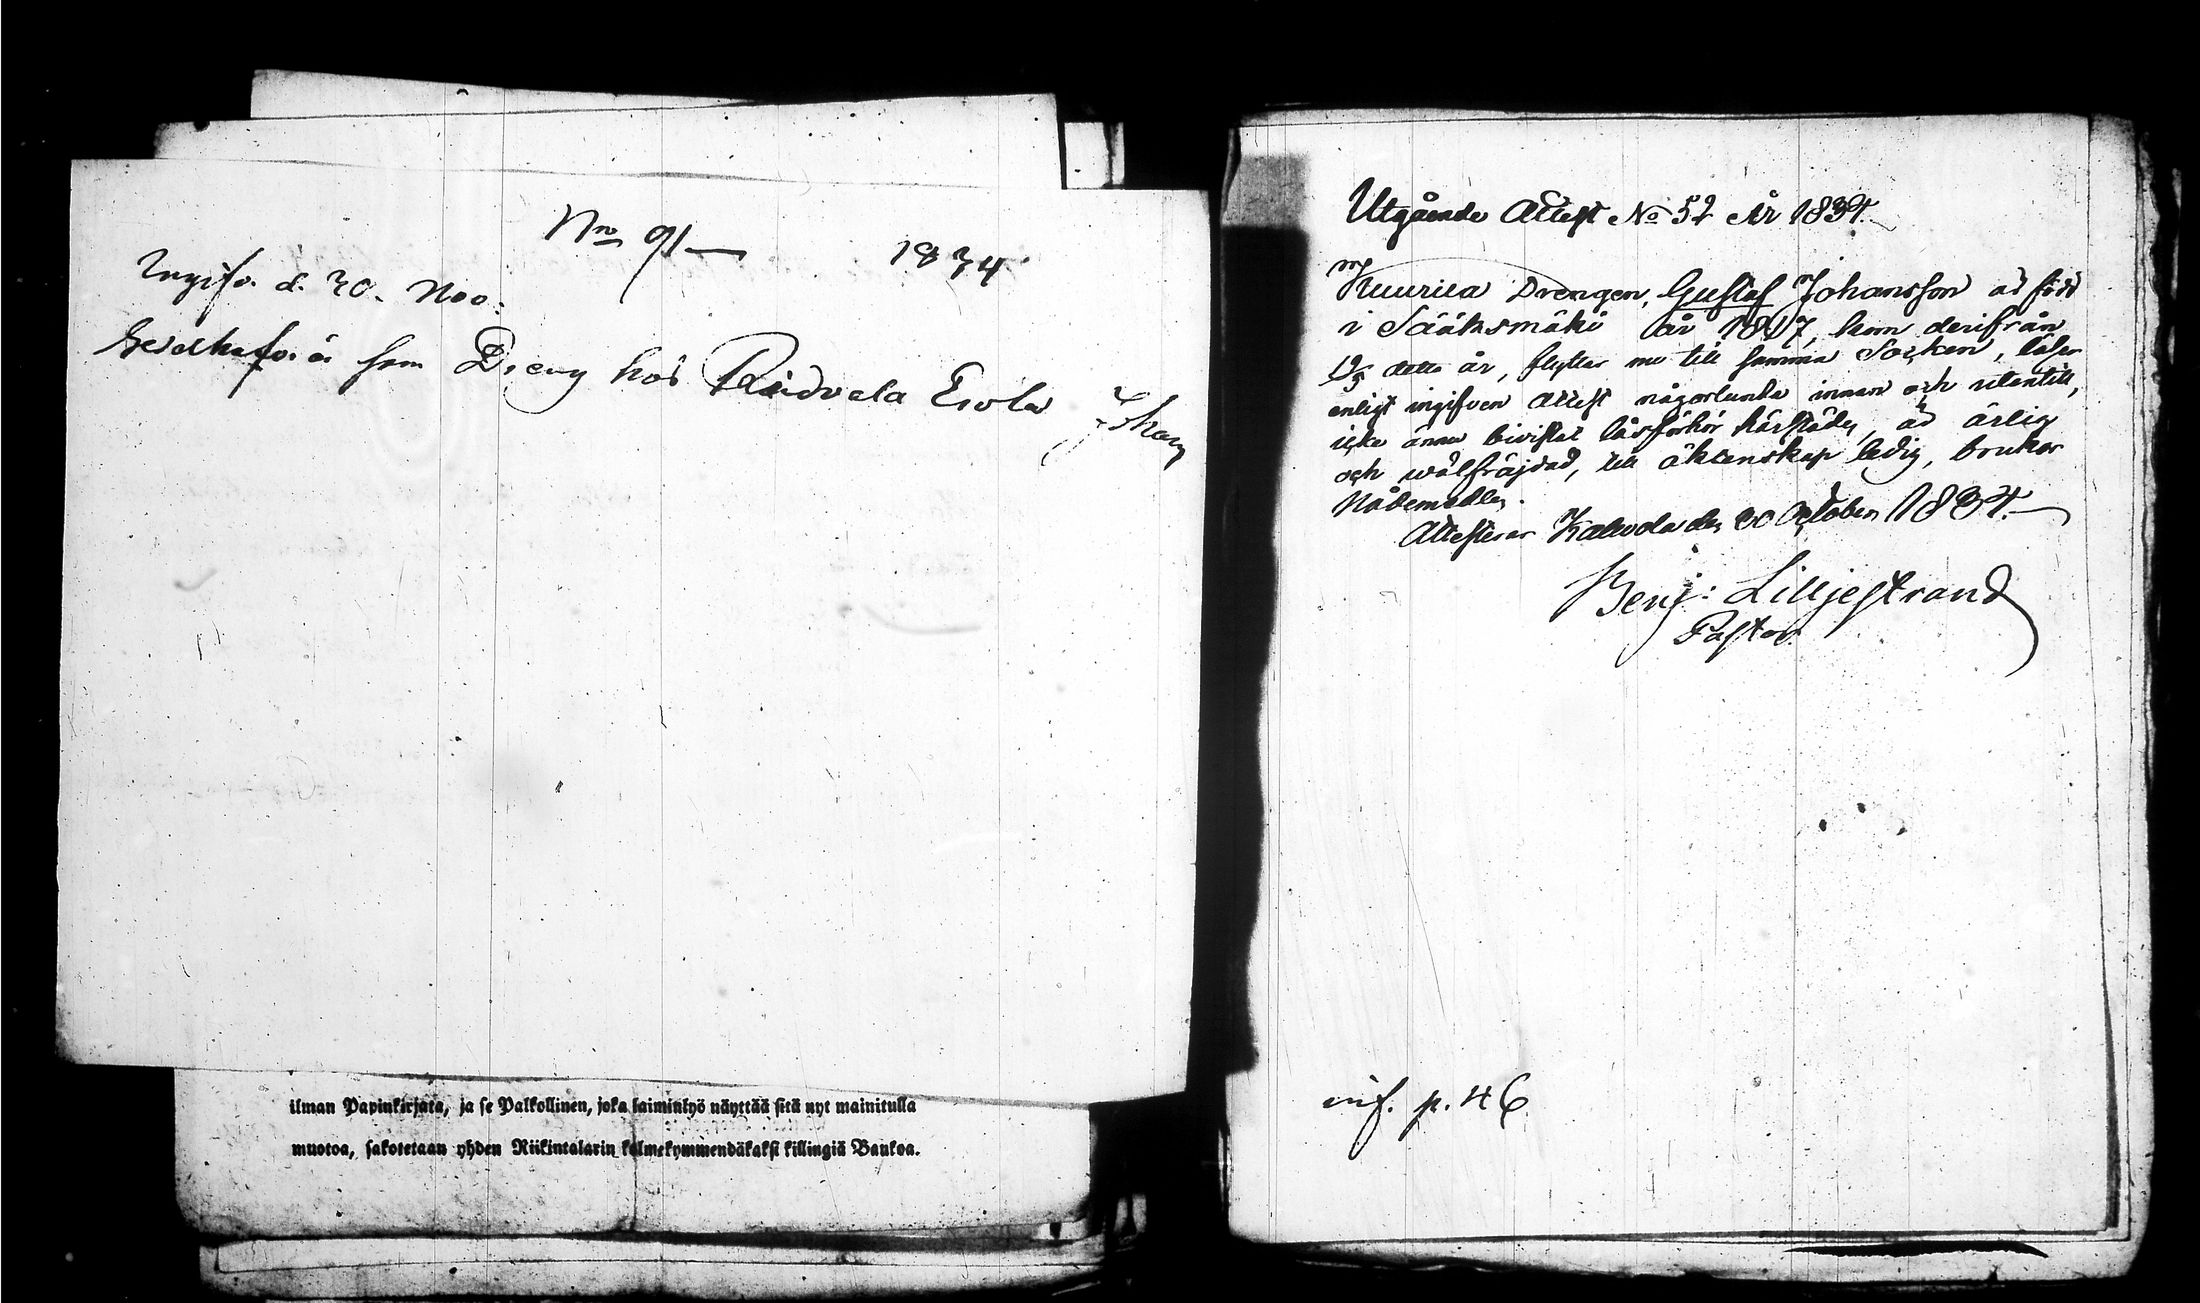 Nro 91 1834
Ingifv. d. 30. Nov.
som Dreng hos Ridvala Erola
ilman Papinkirjata, ja se Palkollinen, joka laiminlyö näyttää sitä nyt mainitulla
muotoa, sakotetaan yhden Riikintalarin kolmekymmendäkaksi killingiä Bankoa.
Utgående Attest No 52 År 1834.
Drengen, Gustaf Johansson är född
i Sääksmäki år 1817, kom derifrån
detta år, flyttar nu till samma Socken, läser
enligt ingifven attest någorlunda innan och utantill,
icke ännu bivistat läsförhör härstädes, är ärlig
och wälfräjdad, till äktenskap ledig, brukar
Nådemedlen.
Attesterar Kalvola den 30 October 1834.
Benj: Lilljestrand
Pastor.
inf. p. 46